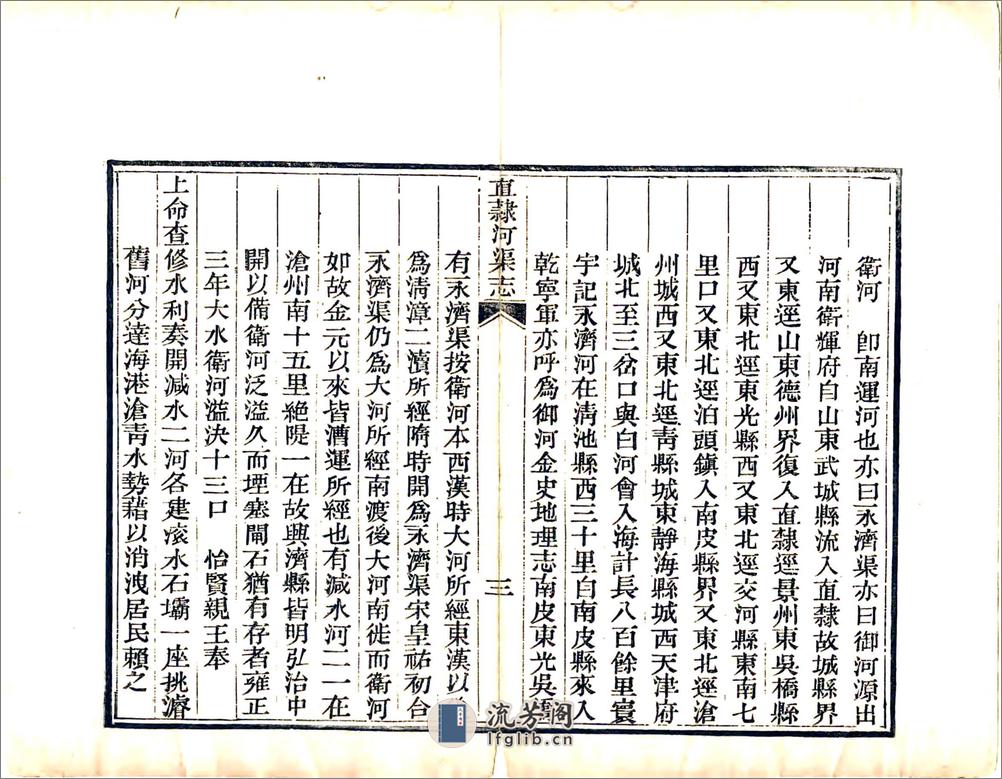 衛河　卽南運河也亦曰永濟渠亦曰御河源出
河南衛輝府自山東武城縣流入直隸故城縣界
又東逕山東德州界復入直隸逕景州東吳橋縣
西又東北逕東光縣西又東北逕交河縣東南七
里口又東北逕泊頭鎮入南皮縣界又東北逕滄
州城西又東北逕靑縣城東靜海縣城西天津府
城北至三岔口與白河會入海計長八百餘里寰
宇記永濟河在淸池縣西三十里自南皮縣來入
乾寧軍亦呼爲御河金史地理志南皮東光吳橋
直隸河渠志
三
有永濟渠按衛河本西漢時大河所經東漢以
爲清漳二瀆所經隋時開爲永濟渠宋皇祐初合
永濟渠仍爲大河所經南渡後大河南徙而衛河
如故金元以來皆漕運所經也有減水河二一在
滄州南十五里絕隄一在故興濟縣皆明弘治中
開以備衛河泛溢久而堙塞閘石猶有存者雍正
三年大水衛河溢決十三口　怡賢親王奉
上命查修水利奏開減水二河各建滚水石壩一座挑濬
舊河分達海港滄靑水勢藉以消洩居民賴之
流芳閣
lfglib.cn